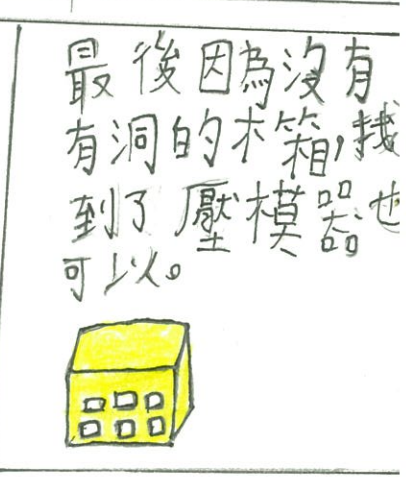 最後因為沒有
有洞的木箱，找
到了壓模器也
可以。